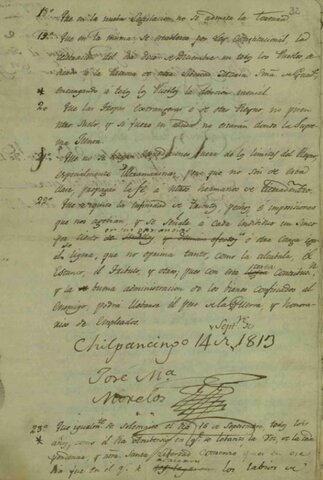 32
18º Que en la nueva Legislacion no se admita la Tortura
19º Que en la misma se establesca por Ley Constitucional la
celebracion del dia doce de Diciembre en todos los Pueblos, de-
dicado à la Patrona de nuestra Libertad Maria Sma. de Guadalupe
encargando a todos los Pueblos la devocion mensal
20 Que las tropas Extrangeras o de otro Reyno no pisen
nuestro Suelo, y si fuere en ayuda no estarán donde la Supre-
ma Junta
21º Que no se hagan expediciones fuera de los limites del Reyno,
especialmente Ultramarinas, pero que no son de esta
clase, propagar la fé à nuestros hermanos de Tierradentro
22º Que se quite la infinidad de tributos, pechos, é imposiciones
que nos agobian, y se señale à cada individuo un cinco
por ciento de sus ganancias u otra carga igual
de ligera, que no oprima tanto, como la alcabala, el
Estanco, el Tributo, y otros, pues con esta
y la buena administracion de los bienes confiscados al
Enemigo, podrá llevarse el peso de la Guerra, y honora-
rios de Empleados.
Chilpancingo 14 de Septre. de 1813
José Ma.
Morelos
23º Que igualmte. se solemnice el dia 16 de Septiembre todos los
años, como el dia Aniversario en qe. se levantó la Voz de la Inde-
pendencia, y nuestra Santa Libertad comenzó, pues en ese
dia fue en el qe. se los labios de